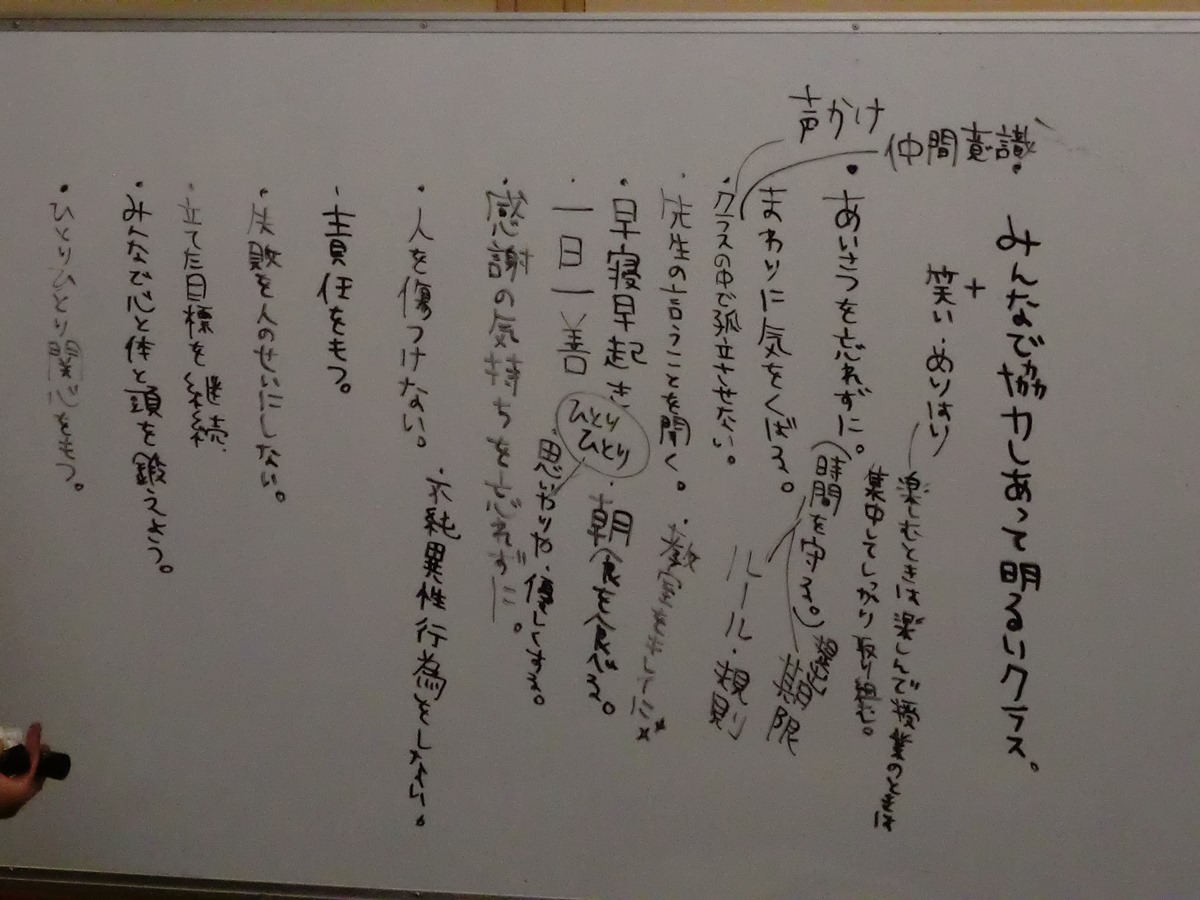 声かけ
仲間意識
・みんなで協力しあって明るいクラス。
+
笑い・めりはり
楽しむときは楽しんで授業のときは
集中してしっかり取り組む。
・あいさつを忘れずに。
(時間を守る。)
期限
まわりに気をくばる。
ルール・規則
・クラスの中で孤立させない。
・先生の言うことを聞く。
・教室をきれいに
・早寝早起き
・朝食を食べる。
・一日一善
ひとり
ひとり
・思いやりや優しさ
・感謝の気持ちを忘れずに。
・人を傷つけない。
・不純異性行為をしない。
・責任をもつ。
・失敗を人のせいにしない。
・立てた目標を継続
・みんなで心と体と頭を鍛えよう。
・ひとりひとり関心をもつ。